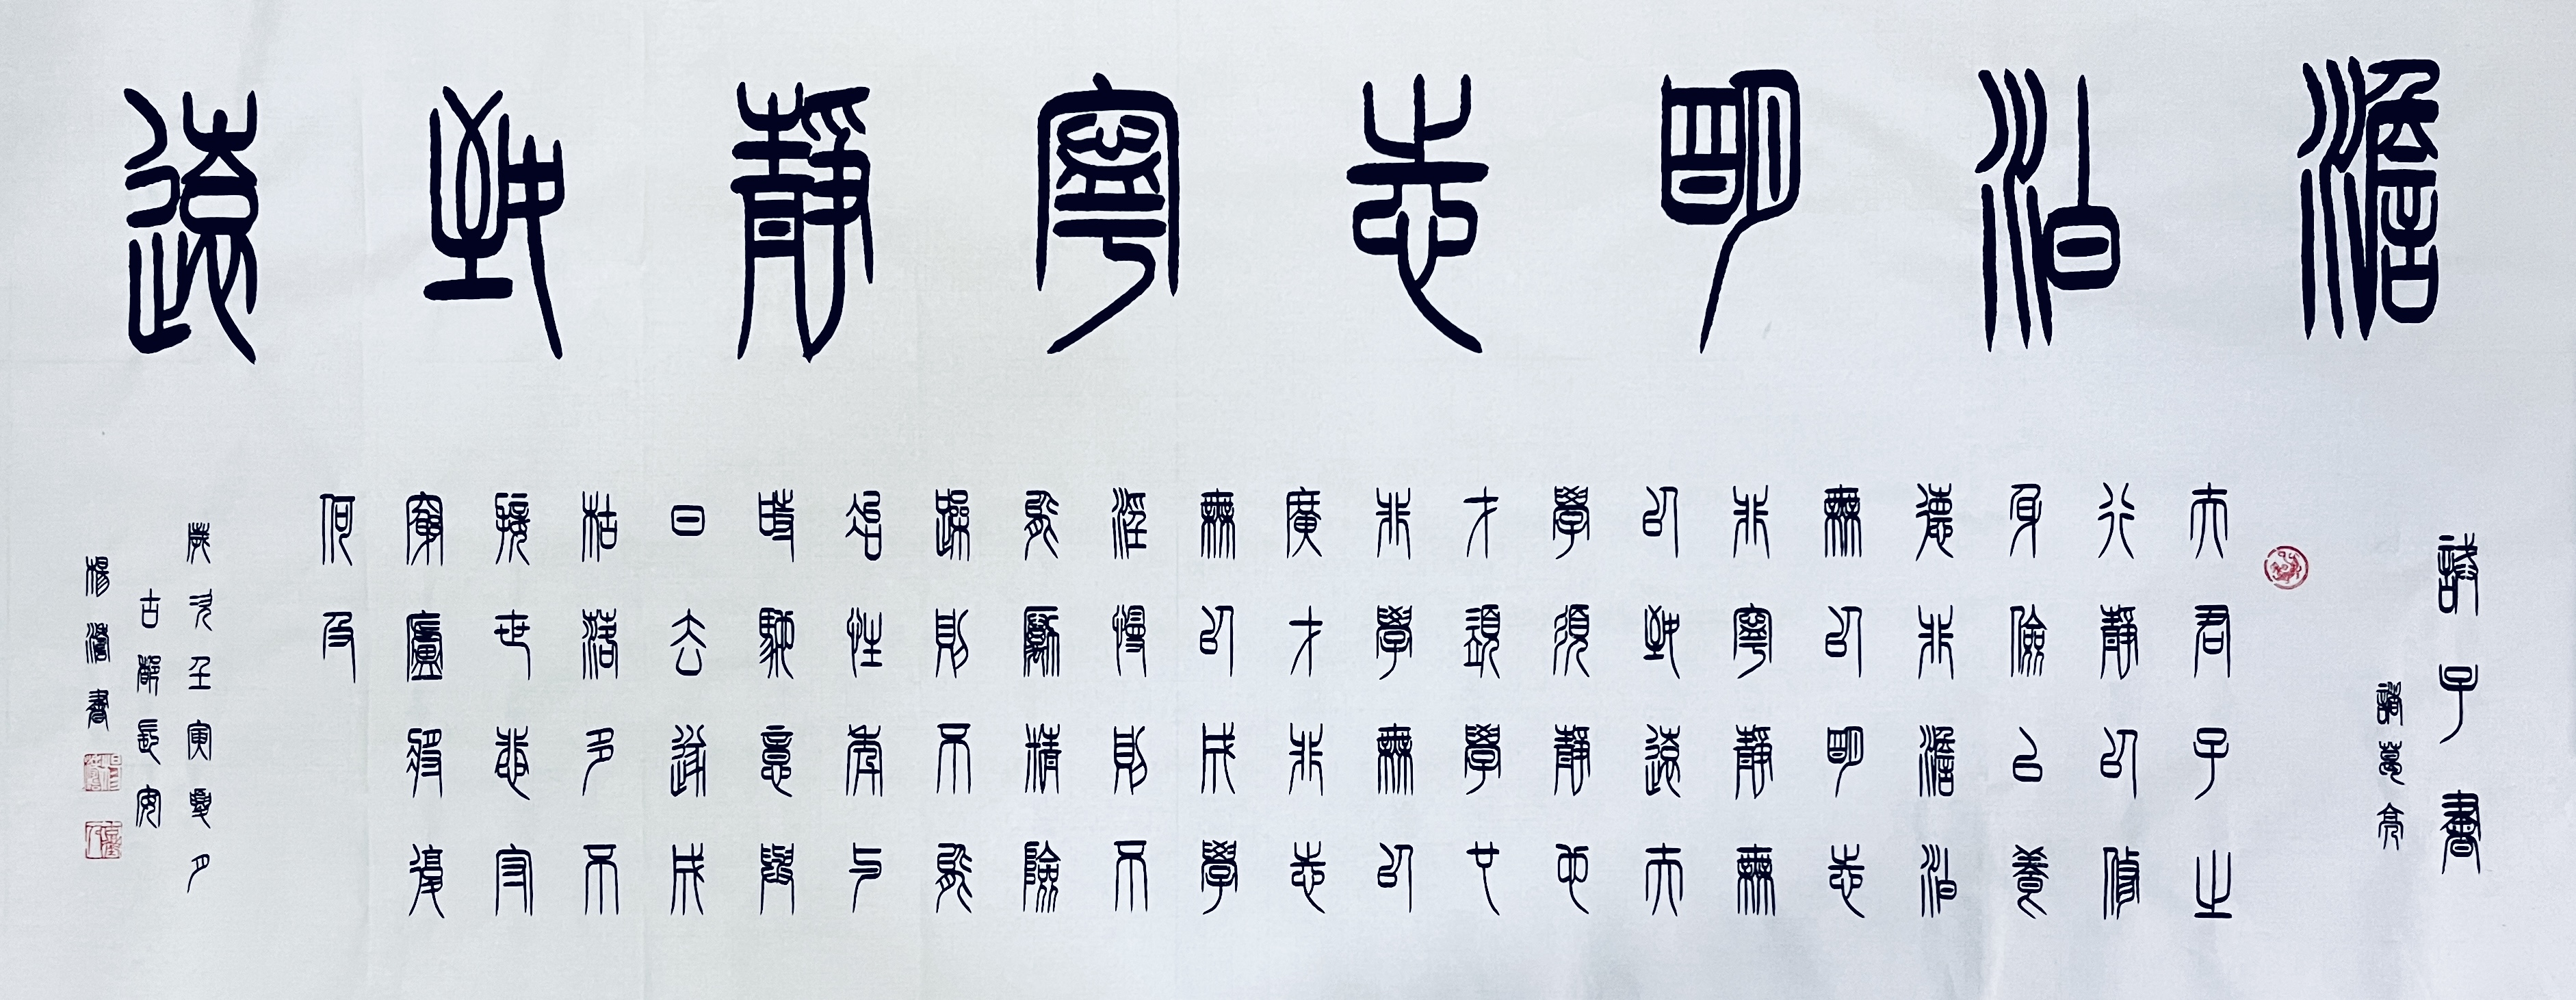 澹泊明志寧靜致遠
誡子書
諸葛亮
夫君子之
行靜以修
身儉以養
德非澹泊
無以明志
非寧靜無
以致遠夫
學須靜也
才須學也
非學無以
廣才非志
無以成學
淫慢則不
能勵精險
躁則不能
冶性年与
時馳意與
日去遂成
枯落多不
接世悲守
窮廬將復
何及
歲次壬寅夏月
古都長安
楊濤書